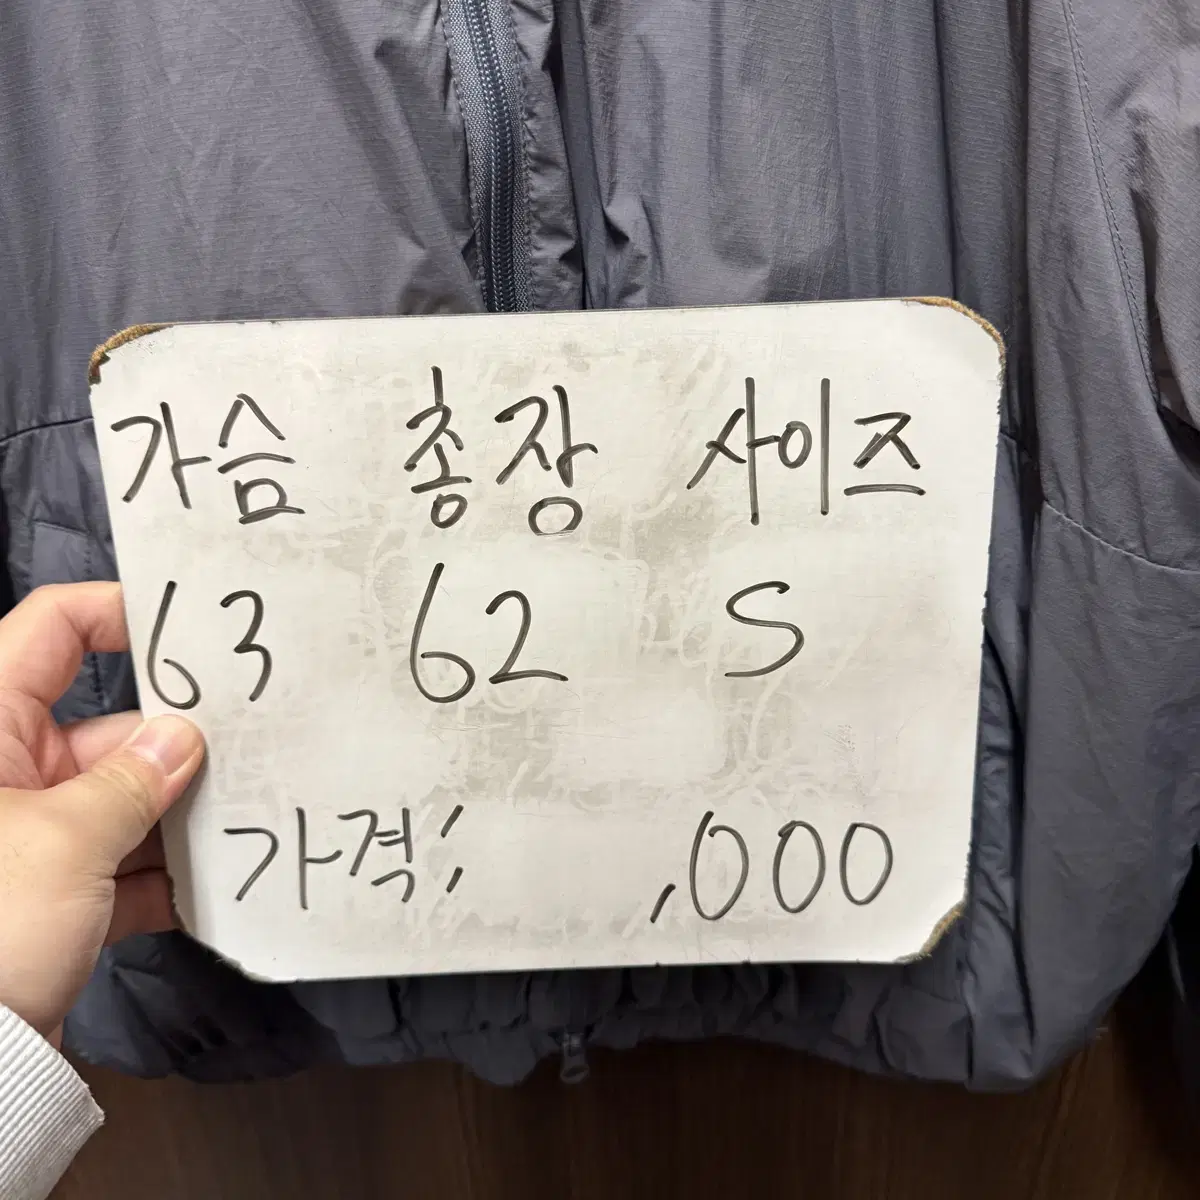 가슴 총장 사이즈
63 62 S
가격: ,000